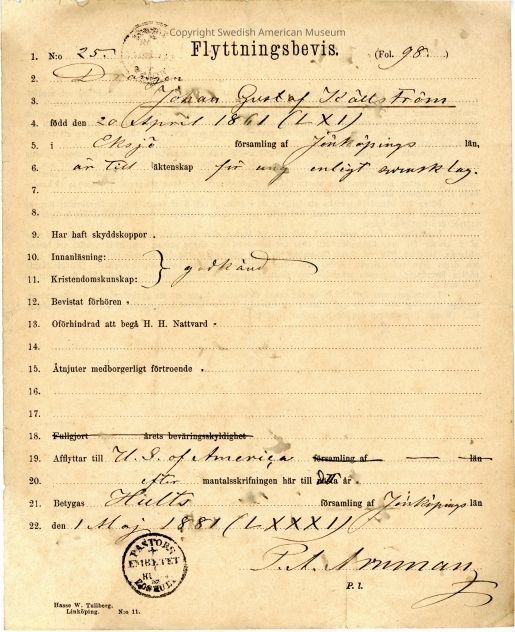 Copyright Swedish American Museum
1. N:o 25. Flyttningsbevis. (Fol. 98.)
2. Drängen
3. Johan Gustaf Källström
4. född den 20 April 1861 (LXI)
5. i Eksjö församling af Jönköpings län,
6. är till äktenskap för ung enligt svensk lag.
7.
8.
9. Har haft skyddskoppor.
10. Innanläsning: godkänd
11. Kristendomskunskap:
12. Bevistat förhören
13. Oförhindrad att begå H. H. Nattvard
14.
15. Åtnjuter medborgerligt förtroende
16.
17.
18. Fullgjort årets beväringsskyldighet
19. Afflyttar till U. S. of America församling af län
20. efter mantalsskrifningen här till år.
21. Betygas Hults församling af Jönköpings län
22. den 1 Maj 1881 (LXXXI)
PASTORS
EMBETET
P. l.
Hasse W. Tullberg.
Linköping. N:o 11.